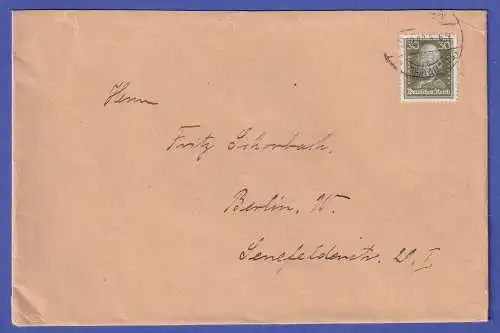 30 30
Deutsches Reich
Herrn
Fritz Schorbach.
Berlin, W.
Senefelderstr. I